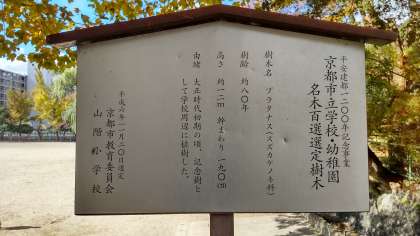 平安建都一二〇〇年記念事業
京都市立学校・幼稚園
名木百選選定樹木
樹木名 プラタナス(スズカケノキ科)
樹齢 約八〇年
高さ 約一二m 幹まわり 一九〇cm
由緒 大正時代初期の頃、記念樹と
して学校周辺に植樹した。
平成六年一一月二〇日選定
京都市教育委員会
山階小学校